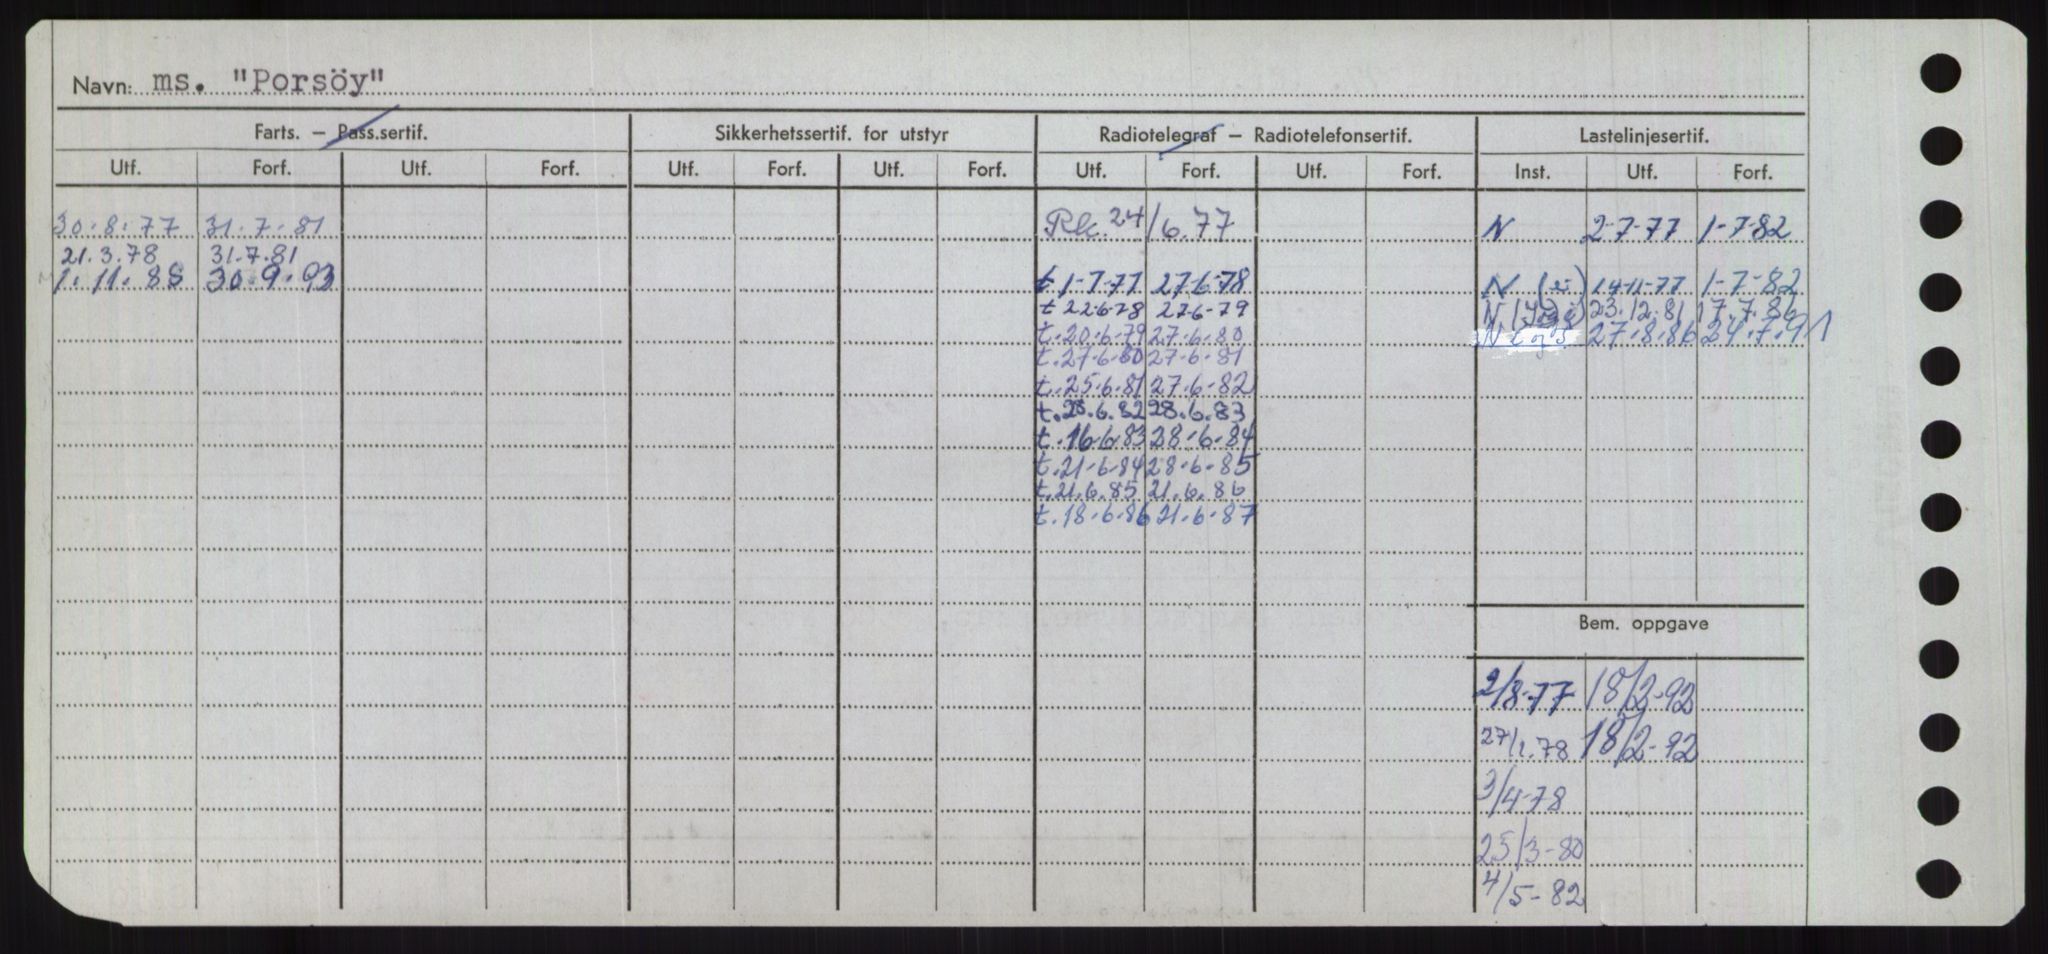 Navn: ms. "Porsöy"
Farts. — Pass.sertif. Sikkerhetssertif. for utstyr Radiotelegraf — Radiotelefonsertif. Lastelinjesertif.
Utf. Forf. Utf. Forf. Utf. Forf. Utf. Forf. Utf. Forf. Utf. Forf. Inst. Utf. Forf.
30.8.77 31.7.81 Rk. 24/6.77 N 2-7-77 1-7-82
21.3.78 31.7.81
1.11.88 30.9.93 t 1-7-77 27-6-78 N 14-11-77 1-7-82
t 22-6-78 27-6-79 N 23.12.81 17.7.86
t.20.6.79 27.6.80 N 27.8.86 24.7.91
t.27.6.80 27-6.81
t.25.6.81 27.6.82
t.28.6.82 28.6.83
t.16.6.83 28.6.84
t.21-6-84 28-6-85
t.21.6.85 21.6.86
t.18.6.86 21.6.87
Bem. oppgave
2/8-77 18/2-92
27/1.78 18/2-92
3/4-78
25/3-80
4/5-82